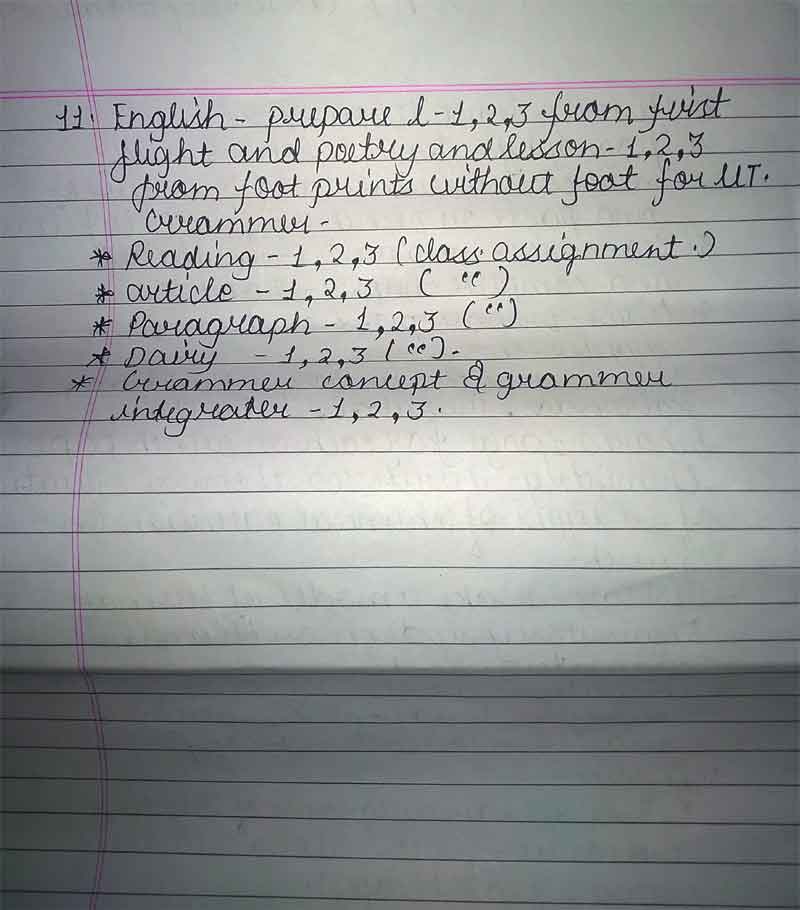 11. English - prepare l-1,2,3 from fwist
flight and poetry and lesson-1,2,3
from foot prints without foat for UT.
Grammer-
* Reading - 1,2,3 (class assignment.)
* article - 1,2,3 ( " )
* Paragraph - 1,2,3 ( " )
* Dairy - 1,2,3 ( " ).
* Grammer concept & grammer
integrater - 1,2,3.